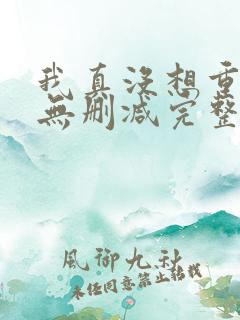 我真没想重
無删减完整
風御九秋
未经同意禁止转载